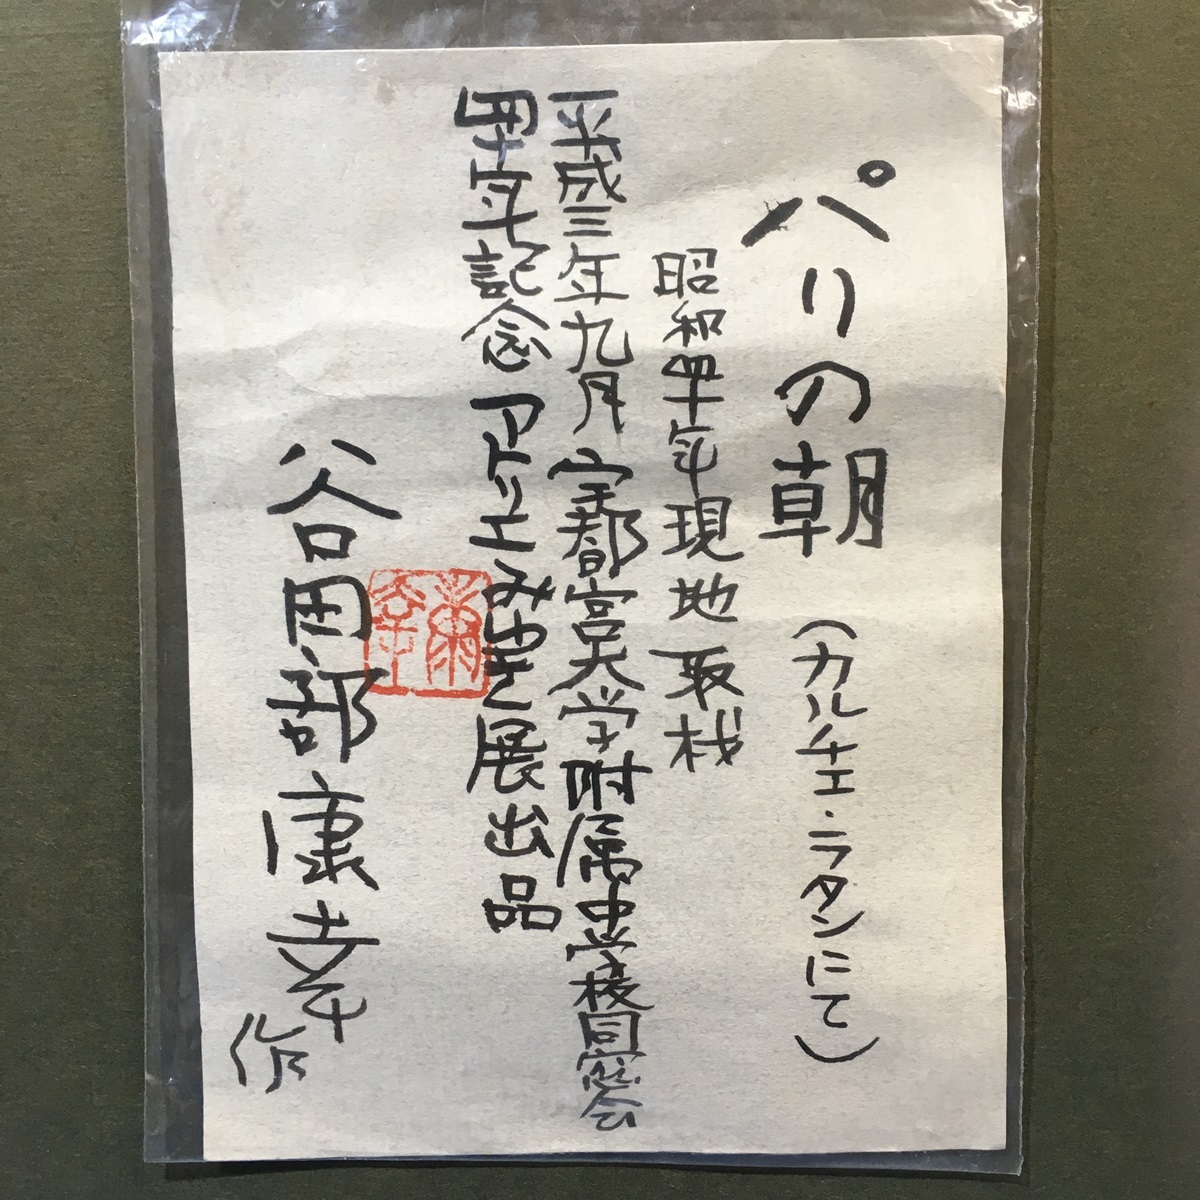 パリの朝
(カルチェ・ラタンにて)
昭和四十年現地取材
平成三年九月 宇都宮大学附属中学校同窓会
四十年記念 アトリエみゆき展出品
谷田部康幸 作
康幸